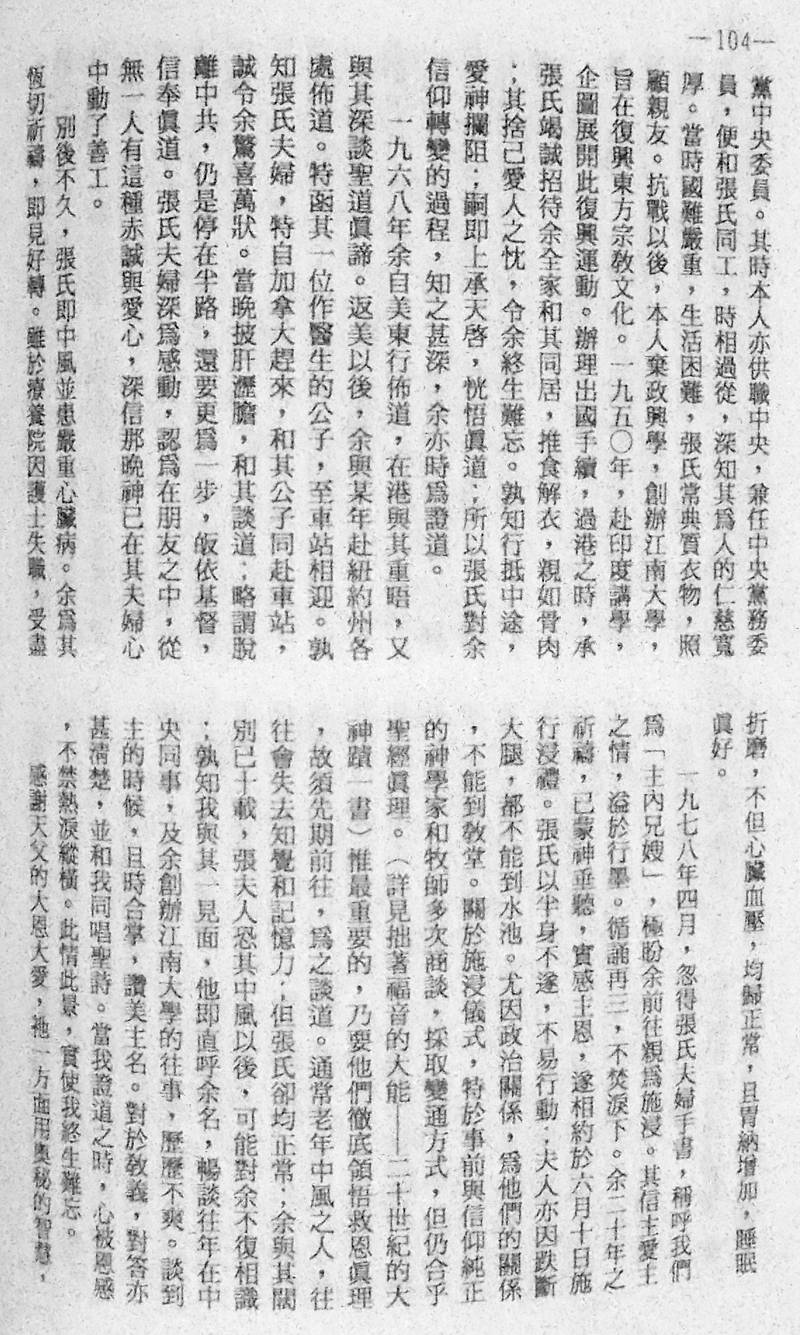 —104—
黨中央委員。其時本人亦供職中央，兼任中央黨務委
員，便和張氏同工，時相過從，深知其爲人的仁慈寬
厚。當時國難嚴重，生活困難，張氏常典質衣物，照
顧親友。抗戰以後，本人棄政興學，創辦江南大學，
旨在復興東方宗教文化。一九五〇年，赴印度講學，
企圖展開此復興運動。辦理出國手續，過港之時，承
張氏竭誠招待余全家和其同居，推食解衣，親如骨肉
；其捨己愛人之忱，令余終生難忘。孰知行抵中途，
愛神攔阻；嗣即上承天啓，恍悟眞道；所以張氏對余
信仰轉變的過程，知之甚深，余亦時爲證道。
一九六八年余自美東行佈道，在港與其重晤，又
與其深談聖道眞諦。返美以後，余與某年赴紐約州各
處佈道。特函其一位作醫生的公子，至車站相迎。孰
知張氏夫婦，特自加拿大趕來，和其公子同赴車站，
誠令余驚喜萬狀。當晚披肝瀝膽，和其談道；略謂脫
離中共，仍是停在半路，還要更爲一步，皈依基督，
信奉眞道。張氏夫婦深爲感動，認爲在朋友之中，從
無一人有這種赤誠與愛心，深信那晚神已在其夫婦心
中動了善工。
別後不久，張氏即中風並患嚴重心臟病。余爲其
恆切祈禱，即見好轉。雖於療養院因護士失職，受盡
折磨，不但心臟血壓，均歸正常，且胃納增加，睡眠
眞好。
一九七八年四月，忽得張氏夫婦手書，稱呼我們
爲「主內兄嫂」，極盼余前往親爲施浸。其信主愛主
之情，溢於行墨。循誦再三，不焚淚下。余二十年之
祈禱，已蒙神垂聽，實感主恩，遂相約於六月十日施
行浸禮。張氏以半身不遂，不易行動；夫人亦因跌斷
大腿，都不能到水池。尤因政治關係，爲他們的關係
，不能到敎堂。關於施浸儀式，特於事前與信仰純正
的神學家和牧師多次商談，採取變通方式，但仍合乎
聖經眞理。（詳見拙著福音的大能——二十世紀的大
神蹟一書）惟最重要的，乃要他們徹底領悟救恩眞理
，故須先期前往，爲之談道。通常老年中風之人，往
往會失去知覺和記憶力；但張氏卻均正常；余與其闊
別已十載，張夫人恐其中風以後，可能對余不復相識
；孰知我與其一見面，他即直呼余名，暢談往年在中
央同事，及余創辦江南大學的往事，歷歷不爽。談到
主的時候，且時合掌，讚美主名。對於敎義，對答亦
甚淸楚，並和我同唱聖詩。當我證道之時，心被恩感
，不禁熱淚縱橫。此情此景，實使我終生難忘。
感謝天父的大恩大愛，祂一方面用奧秘的智慧，